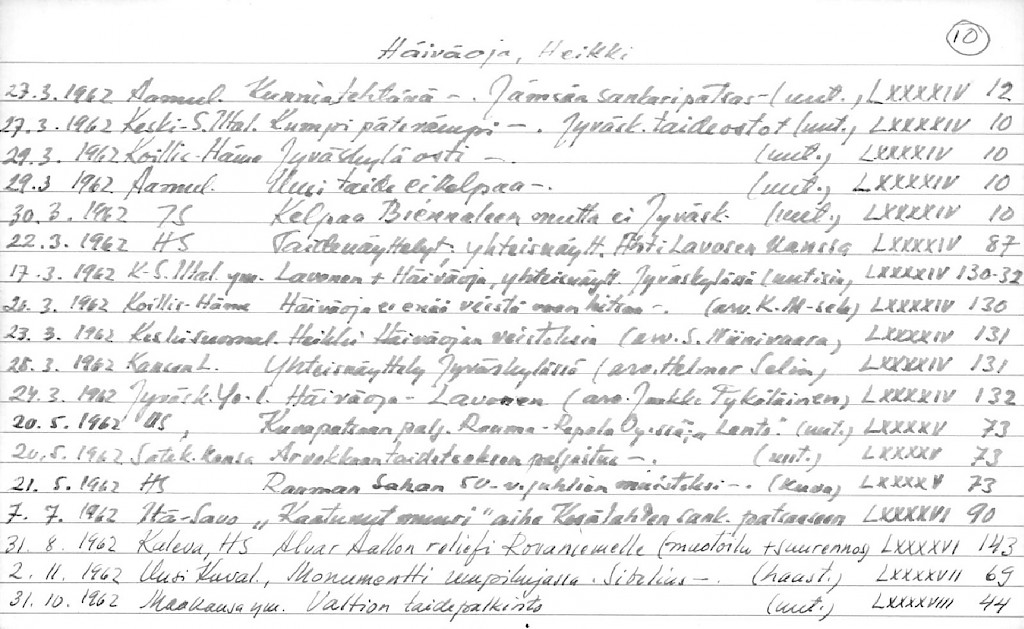 10
Häiväoja, Heikki
27.3.1962 Aamul. Kunniatehtävä -. Jämsän sankaripatsas- (uut., LXXXXIV 12
27.3.1962 Keski-S.Iltal. -. Jyväsk. taideostot (uut.) LXXXXIV 10
29.3. 1962 Koillis-Häme Jyväskylä osti -. (uut.) LXXXXIV 10
29.3 1962 Aamul. Uusi taide ei kelpaa-. (uut.) LXXXXIV 10
30.3. 1962 Kelpaa Biennaleen mutta ei Jyväsk. (uut.) LXXXXIV 10
22.3. 1962 HS Taidenäyttelyt: yhteisnäytt. Lavosen kanssa LXXXXIV 87
17.3. 1962 K-S.Iltal. ym. Lavonen + Häiväoja, yhteisnäytt. Jyväskylässä (uutisia, LXXXXIV 130-32
1962 Koillis-Häme Häiväoja ei enää veistä vaan hitsaa -. (arv. K.M-selä) LXXXXIV 130
23.3. 1962 Keskisuomal. Heikki Häiväojan veistoksia (arv. S. Niinivaara, LXXXXIV 131
28.3. 1962 Kansan L. Yhteisnäyttely Jyväskylässä (arv. Helmer Selin) LXXXXIV 131
24.3. 1962 Jyväsk. Yo-l. Häiväoja - Lavonen (arv. Jaakko Tykötäinen) LXXXXIV 132
20.5. 1962 US, Kuvapatsaan palj. Rauma-Repola Oy:ssä "Lento" (uut.) LXXXXV 73
20.5. 1962 Satak. Kansa Arvokkaan taideteoksen paljastus -. (uut.) LXXXXV 73
21. 5. 1962 HS Rauman Sahan 50-v. juhlien muistoksi -. (kuva) LXXXXV 73
7. 7. 1962 Itä-Savo "Kaatunut muuri" aihe Kesälahden sank. patsaaseen LXXXXVI 90
31. 8. 1962 Kaleva, HS Alvar Aallon reliefi Rovaniemelle (muotoilu + suurennos) LXXXXVI 143
2. 11. 1962 Uusi Kuval., Monumentti umpikujassa. Sibelius -. (haast.) LXXXXVII 69
31. 10. 1962 Maakansa ym. Valtion taidepalkinto (uut.) LXXXXVIII 44